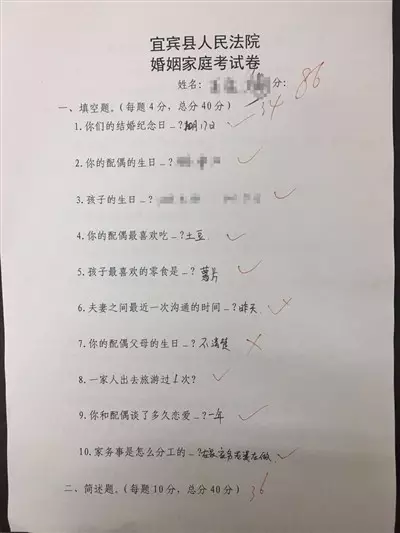 宜宾县人民法院
婚姻家庭考试卷
姓名: 分: 86
一、填空题。(每题4分,总分40分) 34
1.你们的结婚纪念日_?月17日
2.你的配偶的生日_?
3.孩子的生日_?
4.你的配偶最喜欢吃_?土豆
5.孩子最喜欢的零食是_?薯片
6.夫妻之间最近一次沟通的时间_?昨天
7.你的配偶父母的生日_?不清楚
8.一家人出去旅游过1次?
9.你和配偶谈了多久恋爱_?一年
10.家务事是怎么分工的_?在做
二、简述题。(每题10分,总分40分) 36